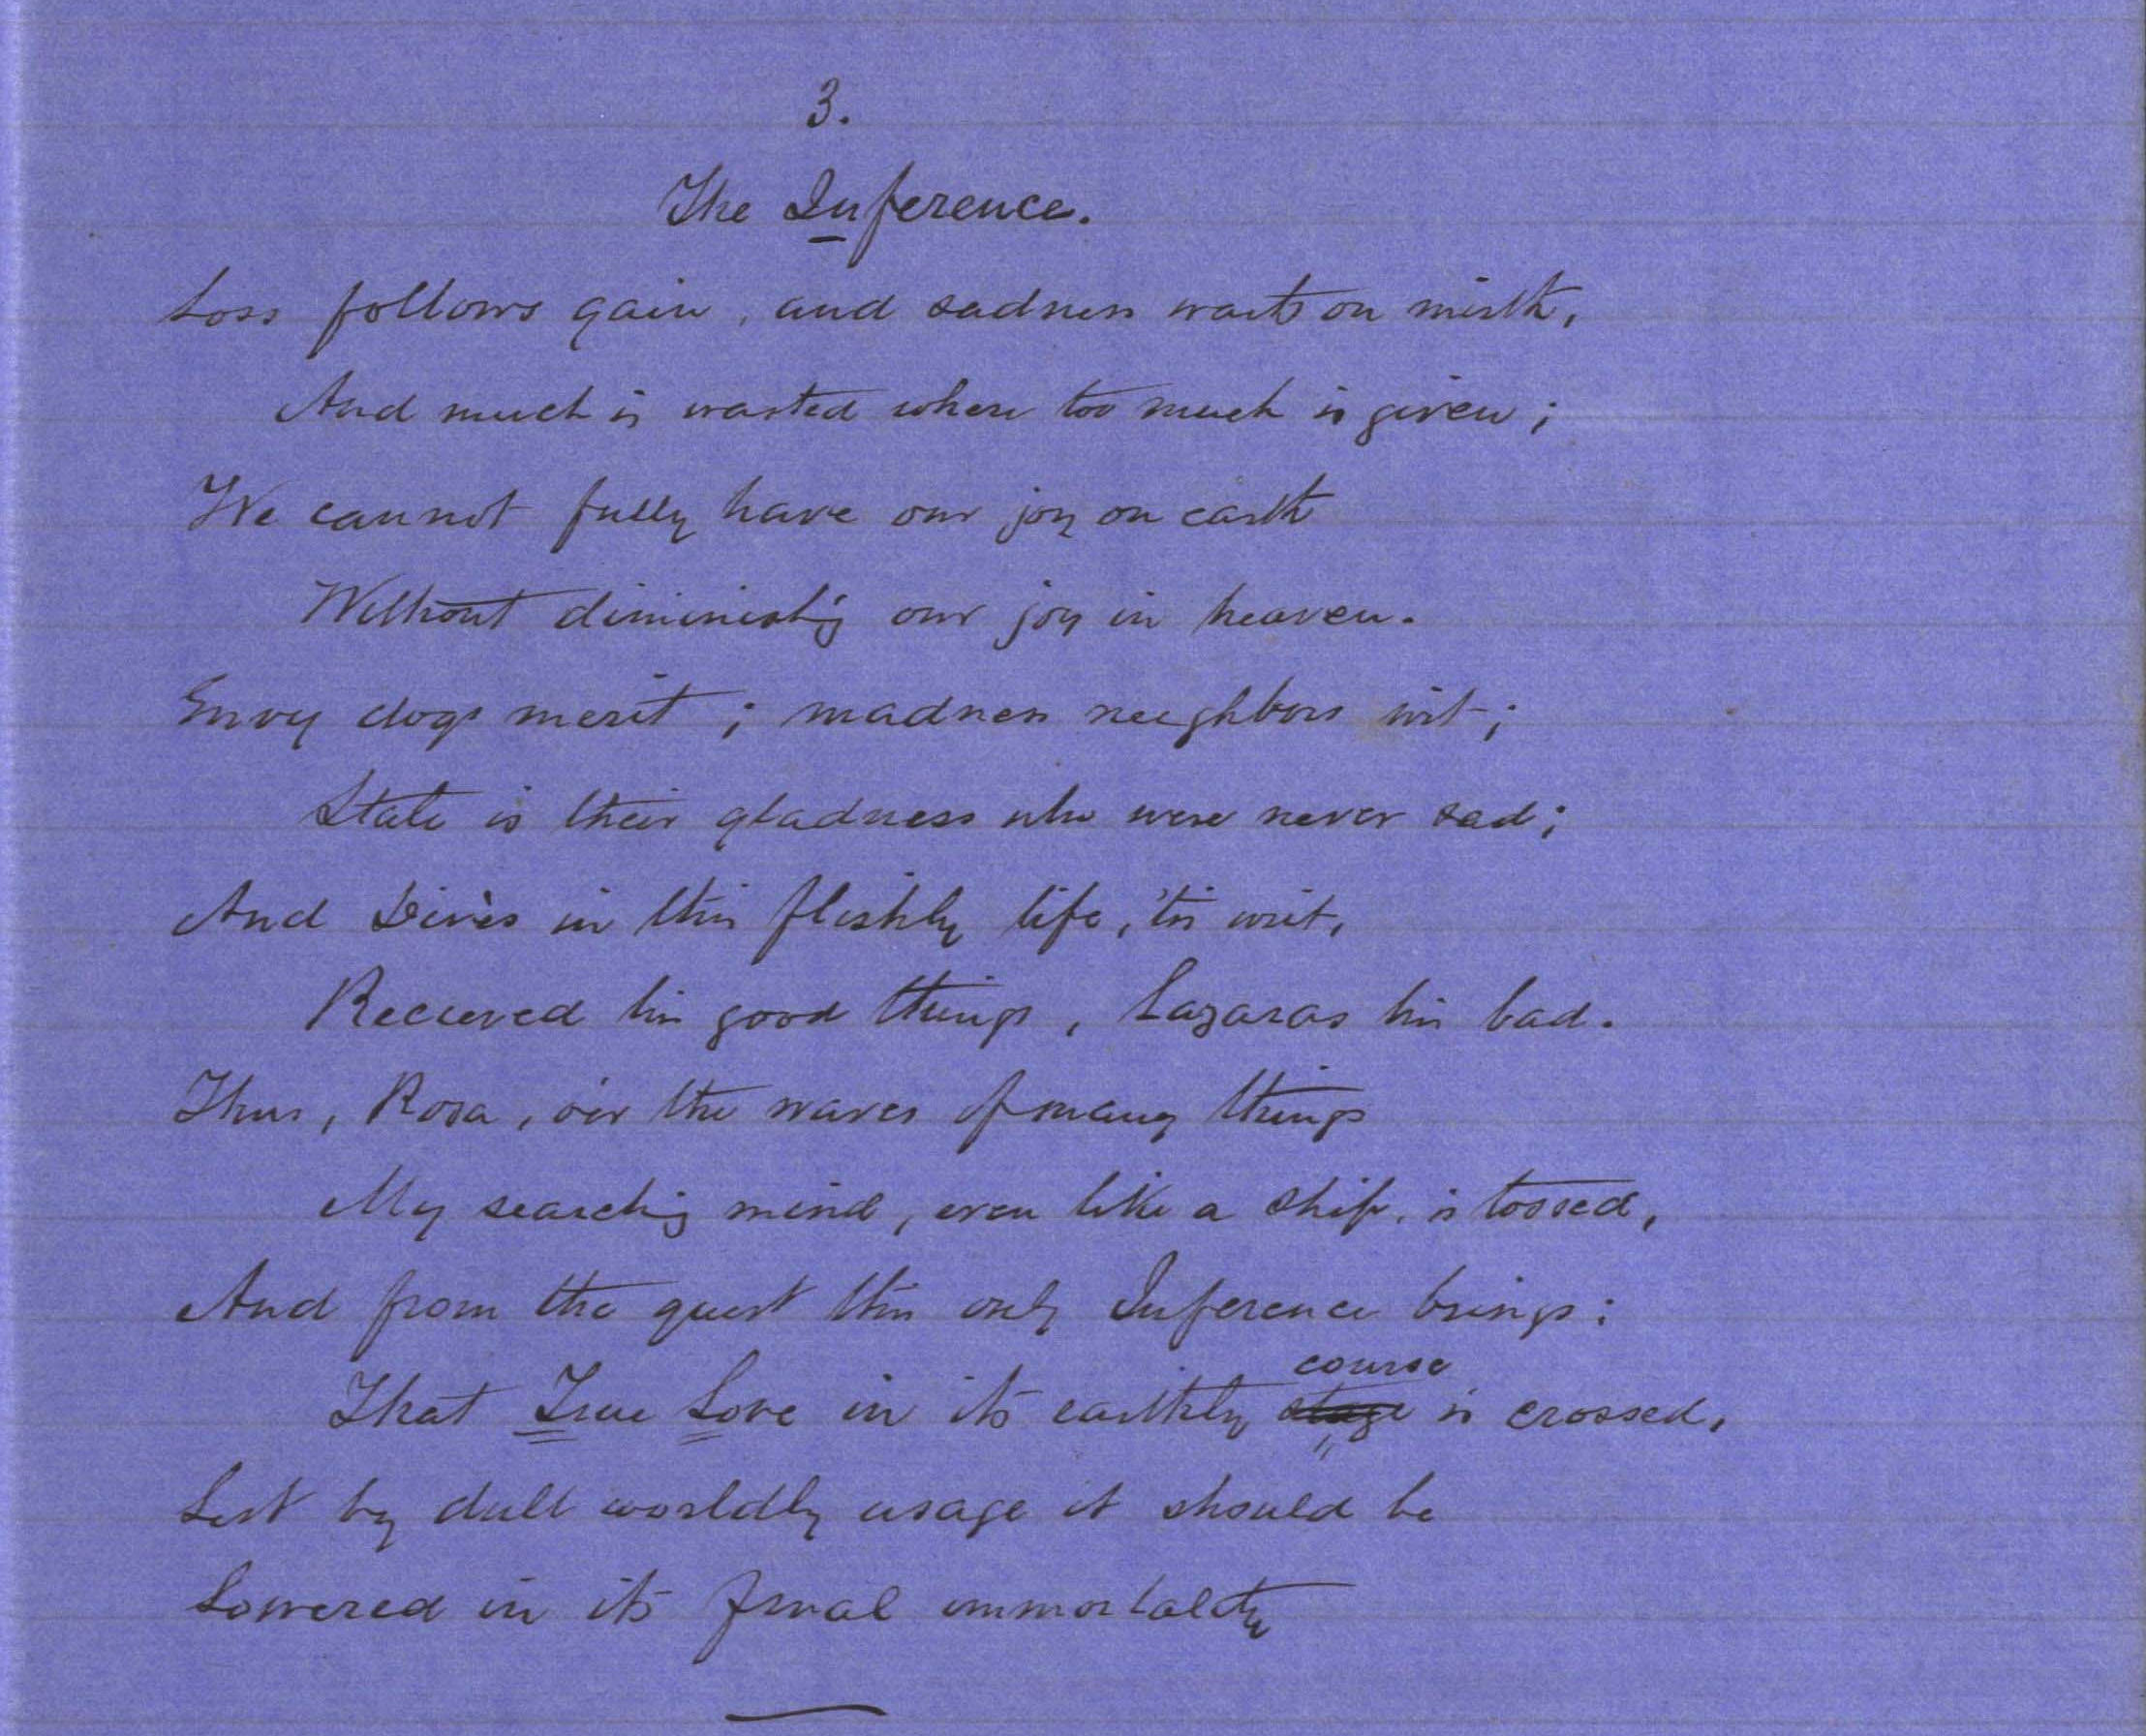 3.
The Inference.
Loss follows gain, and sadness waits on mirth,
And much is wasted where too much is given;
We cannot fully have our joy on earth
Without diminishing our joy in heaven.
Envy dogs merit; madness neighbors wit;
Stale is their gladness who were never sad;
And Dives in this fleshly life, 'tis writ,
Received his good things, Lazaras his bad.
Thus, Rosa, o'er the waves of many things
My searching mind, even like a ship, is tossed,
And from the quest this only Inference brings:
course
That True Love in its earthly stage is crossed,
Lest by dull worldly usage it should be
Lowered in its final immortality